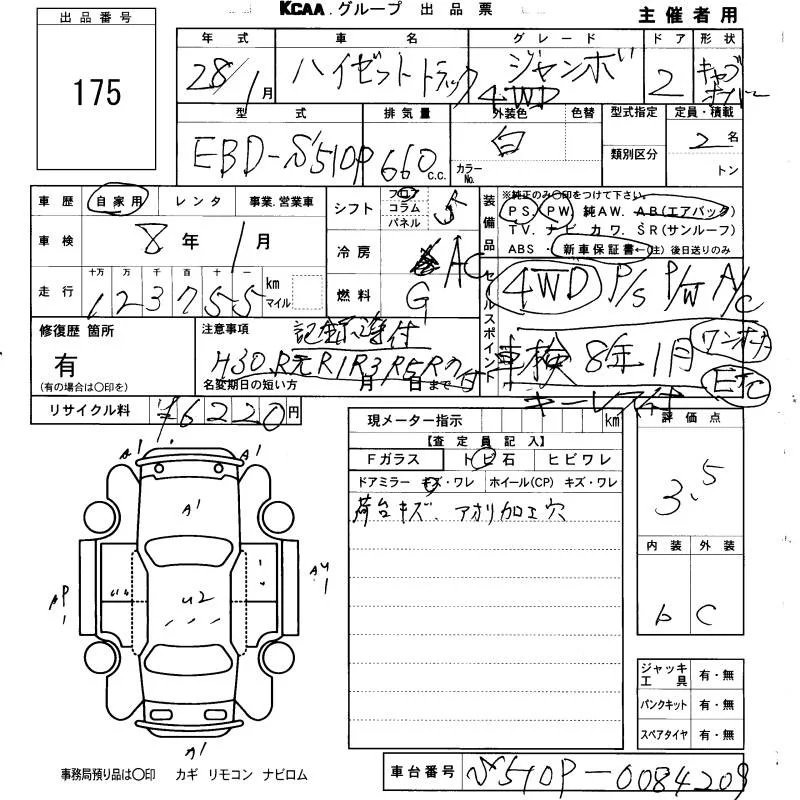 KCAA.グループ 出品票
主催者用
出品番号
175
年式 車名 グレード ドア 形状
28/1月 ハイゼットトラック ジャンボ 4WD 2 キャブオーバー
型式 排気量 外装色 色替 型式指定 定員・積載
EBD-S510P 660 c.c. 白 カラーNo. 類別区分 2名 トン
車歴 自家用 レンタ 事業.営業車
車検 8年1月
走行 十万 万 千 百 十 一 km マイル
123755
シフト フロア コラム パネル
冷房 AC
燃料 G
装備品
※純正のみ○印をつけて下さい
PS. PW. 純AW. AB(エアバック)
TV. ナビ. カワ. SR(サンルーフ)
ABS・新車保証書←(注)後日送りのみ
セールスポイント
4WD P/S P/W A/C
車検 8年1月 ワンオーナー
キーレス付 ETC
修復歴 箇所
有
(有の場合は○印を)
注意事項 記録簿付
H30.R元R1R3R5R7付
名変期日の短い方 月 日まで
リサイクル料 ¥6220円
現メーター指示 km
【査定員記入】
Fガラス トビ石 ヒビワレ
ドアミラー キズ・ワレ ホイール(CP) キズ・ワレ
荷台キズ、アオリ加工穴
評価点
3.5
内装 外装
b C
A1 A1
A1
AP1
U2
A41
A1
ジャッキ工具 有・無
パンクキット 有・無
スペアタイヤ 有・無
事務局預り品は○印 カギ リモコン ナビロム
車台番号 S510P-0084209